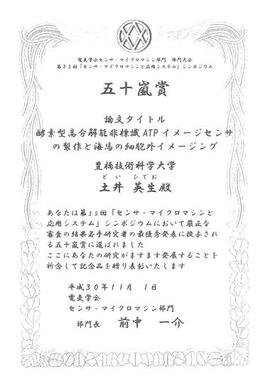 電気学会センサ・マイクロマシン部門 部門大会
第35回「センサ・マイクロマシンと応用システム」シンポジウム
五十嵐賞
論文タイトル
酵素型高分解能非標識ATPイメージセンサ
の製作と海馬の細胞外イメージング
豊橋技術科学大学
どい ひでお
土井 英生殿
あなたは第35回「センサ・マイクロマシンと
応用システム」シンポジウムにおいて厳正な
審査の結果若手研究者の最優秀発表に授与され
る五十嵐賞に選ばれました
ここにあなたの研究がますます発展することを
祈念して記念品を贈り表彰いたします
平成30年11月 1日
電気学会
センサ・マイクロマシン部門
部門長 前中 一介